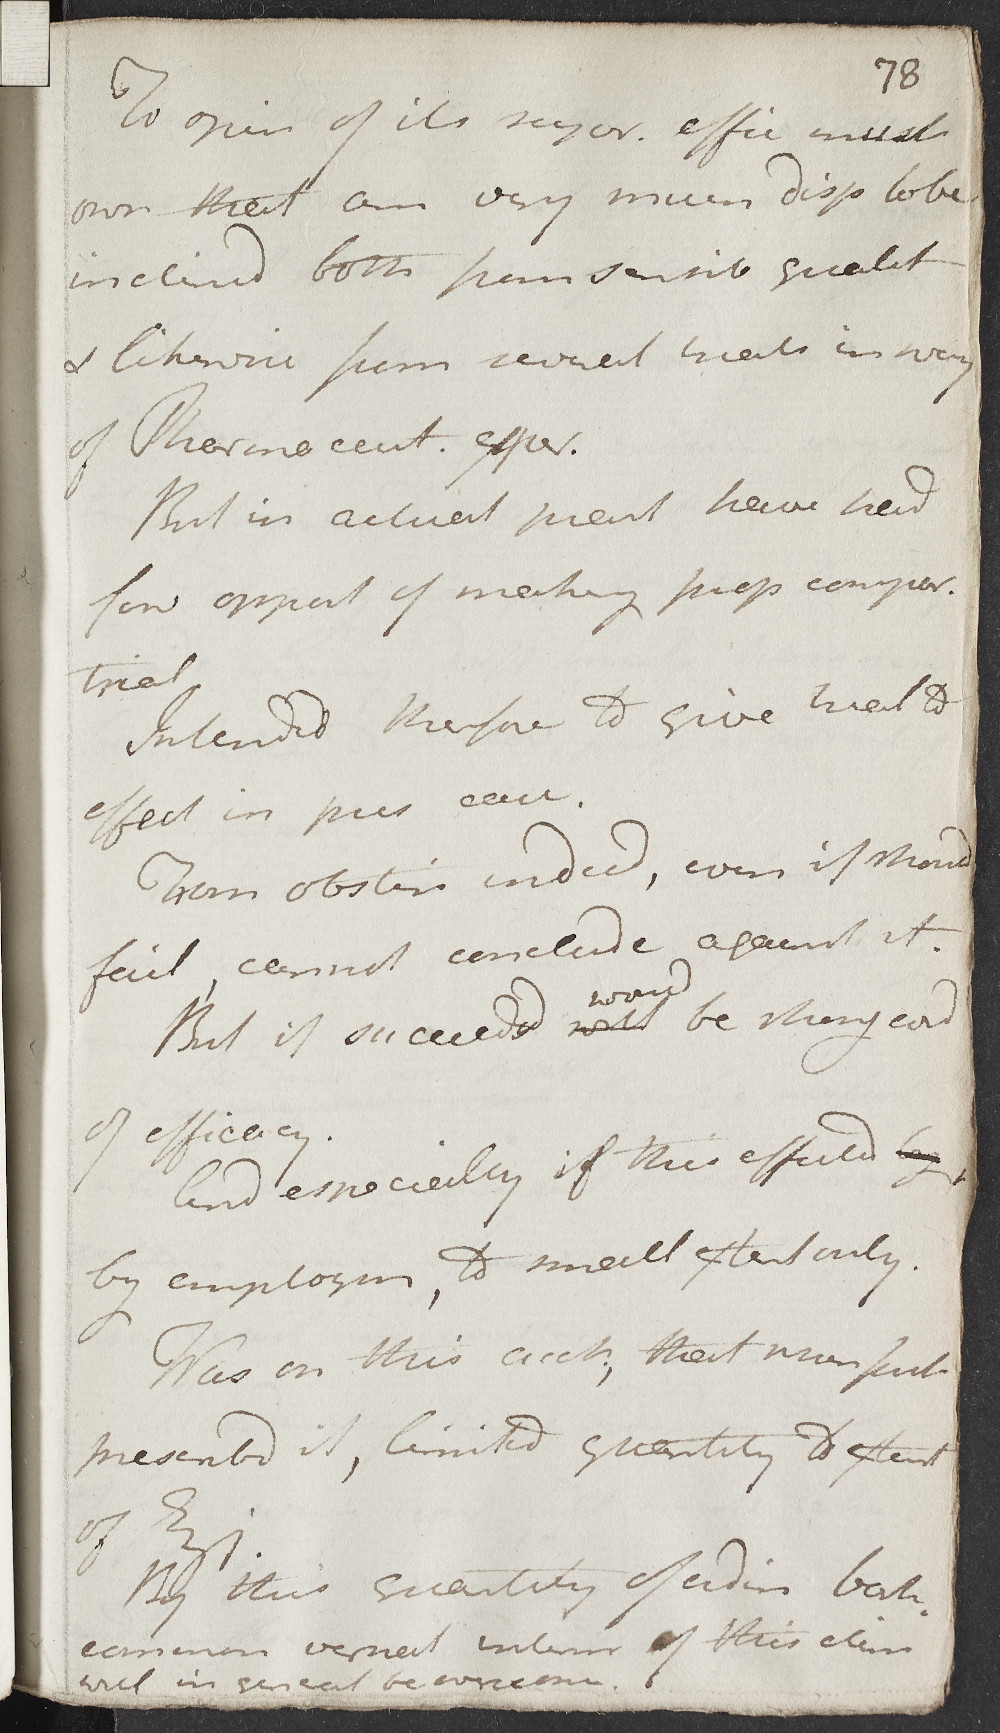 78
To opin of its super. effic must
own that am very much disp to be
inclind both from sensib qualit
& likewise from several trials in way
of Pharmaceut. exper.
But in actual pract have had
few opport of making prop compar.
trial
Intended therefore to give trial to
effect in pres case.
From obstin indeed, even if should
fail, cannot conclude against it.
But if succeeded will would be strong evid
of efficacy.
And especially if this effected
by employm, to small extent only.
Was on this acct, that when first
prescribd it, limited quantity to extent
of ℥j
By this quantity of ordin bark.
common vernal interm of this clim
will in general be overcome.